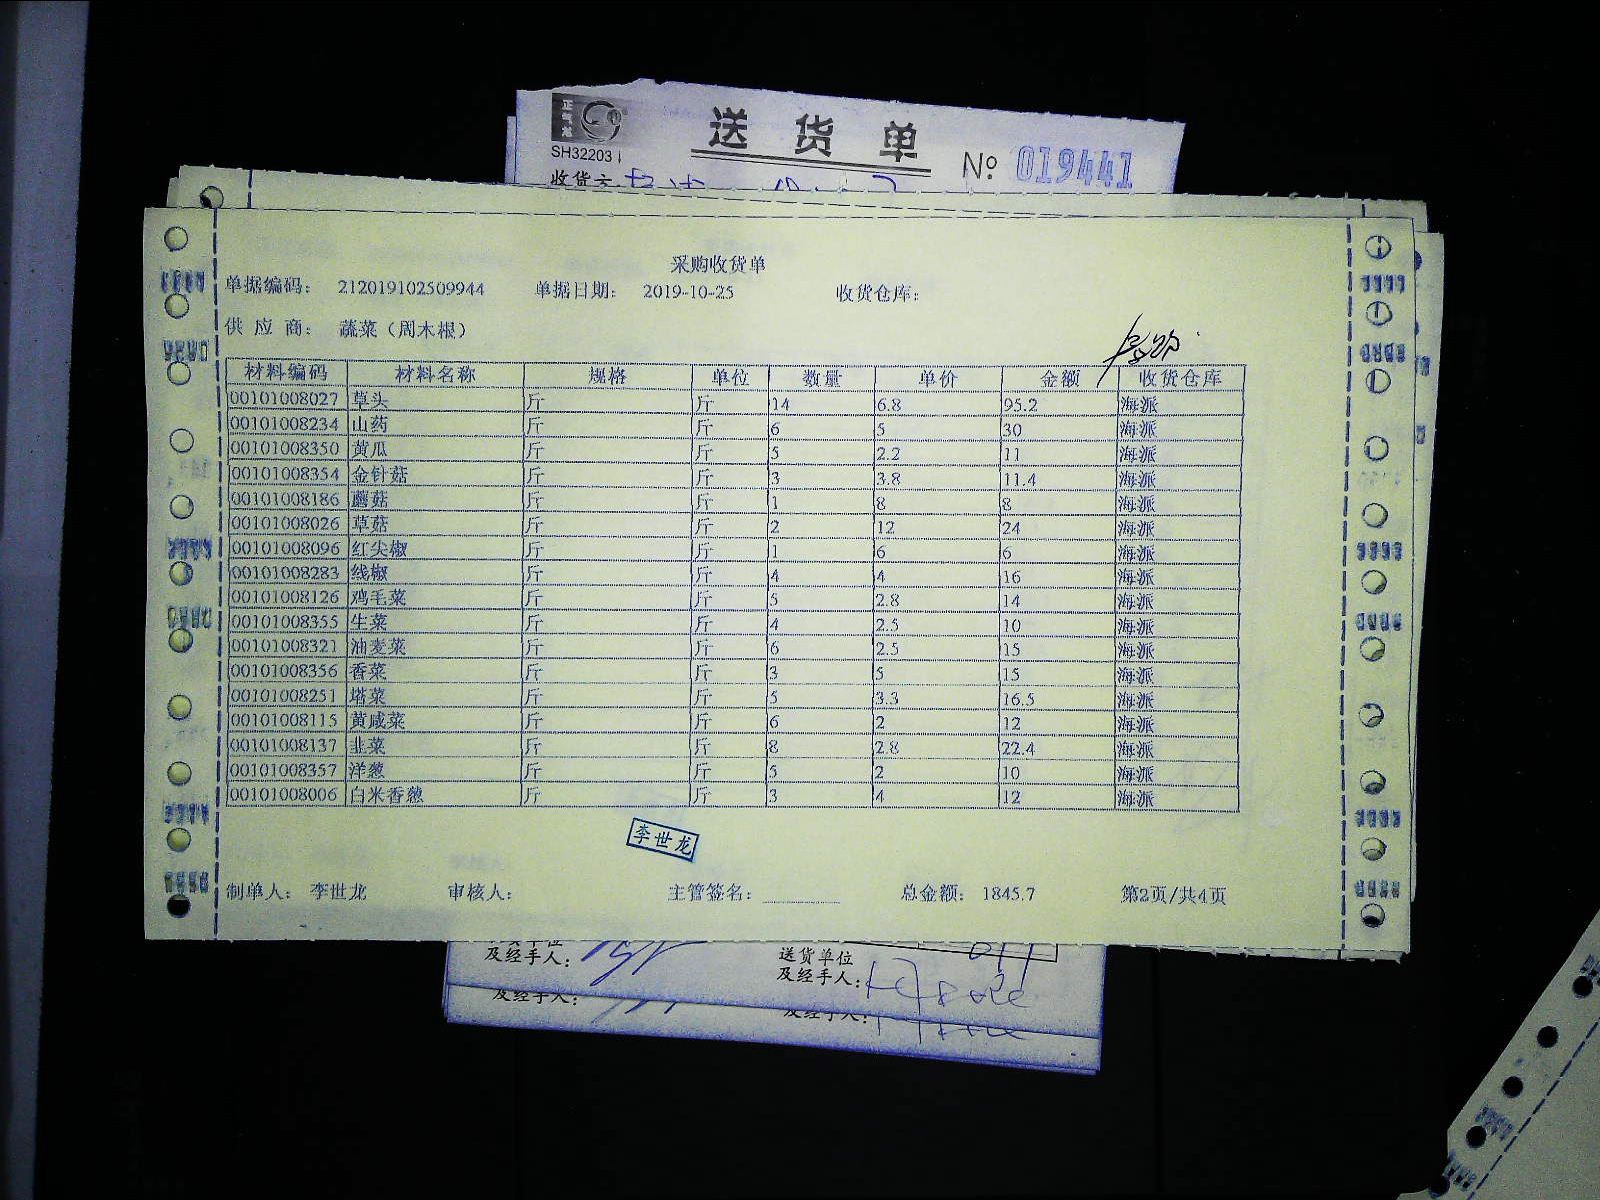 正气龙
SH32203
送货单
№ 019441
收货
采购收货单
单据编码: 212019102509944 单据日期: 2019-10-25 收货仓库:
供应商: 蔬菜（周木根）
材料编码 材料名称 规格 单位 数量 单价 金额 收货仓库
00101008027 草头 斤 斤 14 6.8 95.2 海派
00101008234 山药 斤 斤 6 5 30 海派
00101008350 黄瓜 斤 斤 5 2.2 11 海派
00101008354 金针菇 斤 斤 3 3.8 11.4 海派
00101008186 蘑菇 斤 斤 1 8 8 海派
00101008026 草菇 斤 斤 2 12 24 海派
00101008096 红尖椒 斤 斤 1 6 6 海派
00101008283 线椒 斤 斤 4 4 16 海派
00101008126 鸡毛菜 斤 斤 5 2.8 14 海派
00101008355 生菜 斤 斤 4 2.5 10 海派
00101008321 油麦菜 斤 斤 6 2.5 15 海派
00101008356 香菜 斤 斤 3 5 15 海派
00101008251 塔菜 斤 斤 5 3.3 16.5 海派
00101008115 黄咸菜 斤 斤 6 2 12 海派
00101008137 韭菜 斤 斤 8 2.8 22.4 海派
00101008357 洋葱 斤 斤 5 2 10 海派
00101008006 白米香葱 斤 斤 3 4 12 海派
李世龙
制单人: 李世龙 审核人: 主管签名: 总金额: 1845.7 第2页/共4页
送货单位
及经手人: 及经手人:
及经手人: 及经手人: